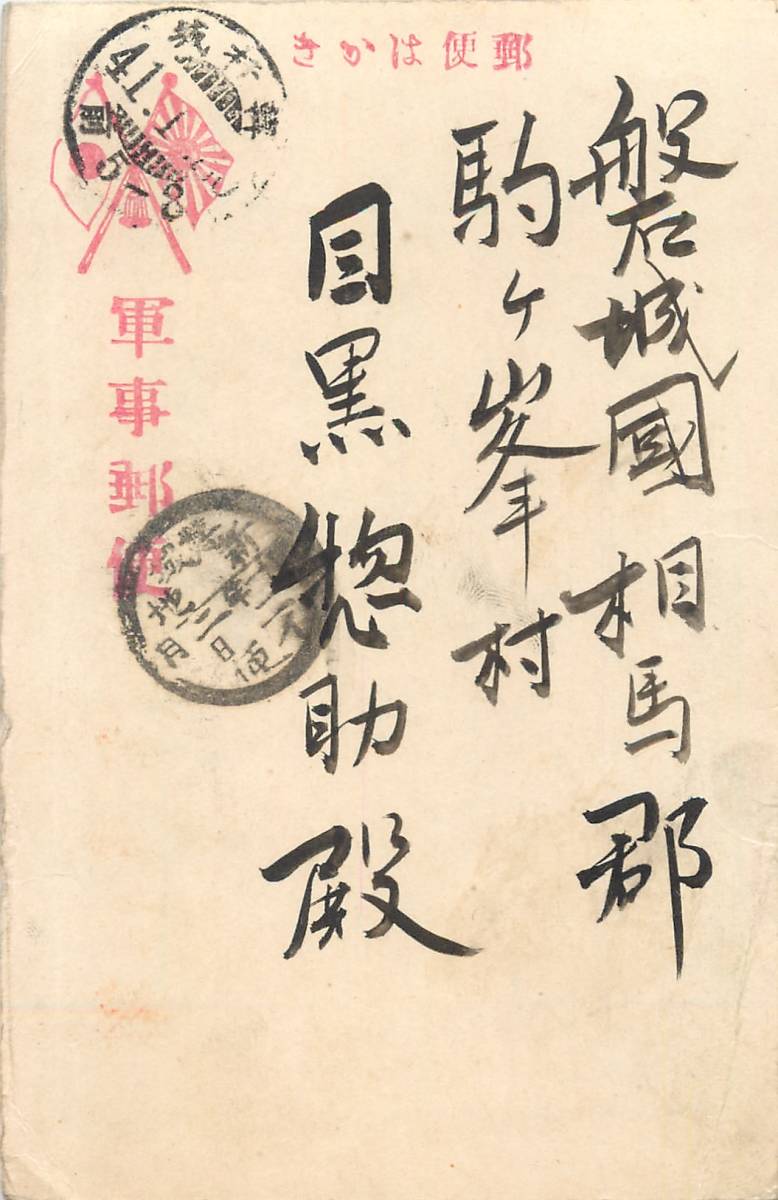 郵便はかき
磐城國相馬郡
駒ヶ峯村
目黒惣助殿
軍事郵便
41.1.
前5-8